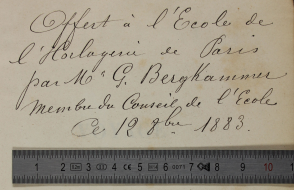 Offert à l'Ecole de
l'Horlogerie de Paris
par Mr G. Bergkammer
membre du Conseil de l'Ecole
Ce 12 8bre 1883.
1 2 3 4 5 6 7 8 9 10 11